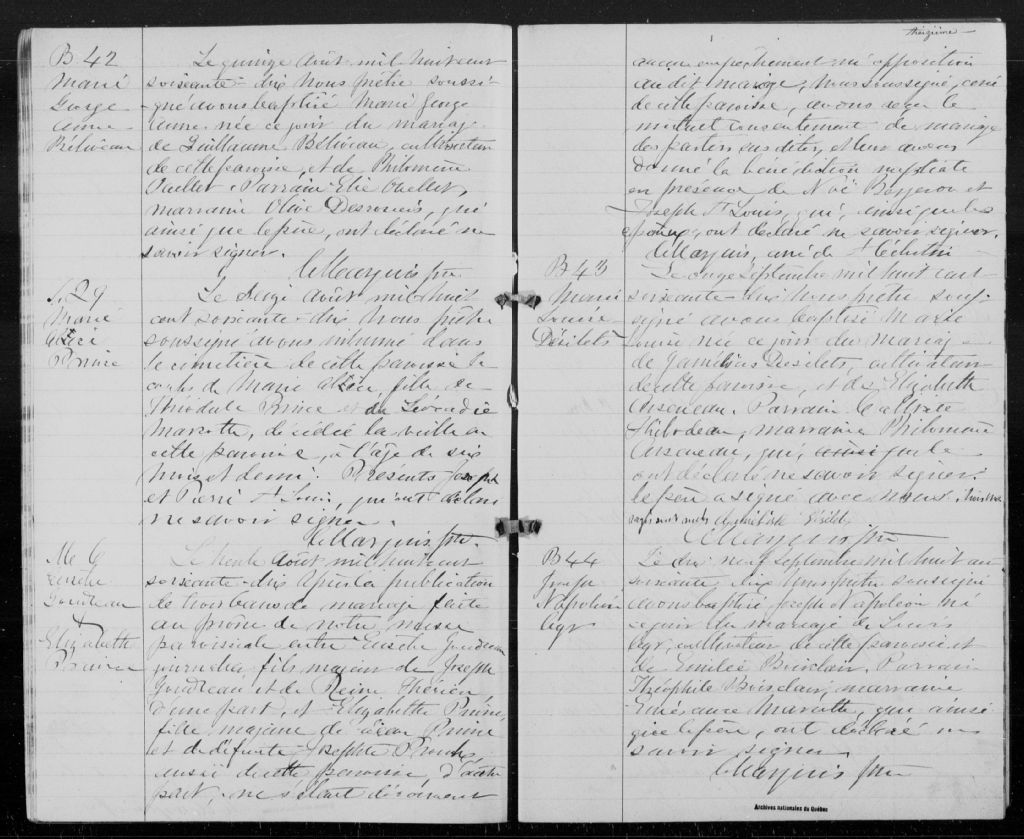 B 42
Marie
George
Anne
Béliveau
Le quinze Août mil huit cent
soixante-dix Nous prêtre soussi-
gné avons baptisé Marie George
Anne née ce jour du mariage
de Guillaume Béliveau, cultivateur
de cette paroisse, et de Philomène
Ouellet. Parrain Elie Ouellet,
marraine Olive Desrosiers, qui
ainsi que le père, ont déclaré ne
savoir signer.
C Marquis ptre
S. 29
Marie
Alice
Prince
Le Seize Août mil huit
cent soixante-dix Nous prêtre
soussigné avons inhumé dans
le cimetière de cette paroisse le
corps de Marie Alice, fille de
Théodule Prince et de Léocadie
Marcotte, décédée la veille en
cette paroisse, à l'âge de six
mois et demi. Présents Joseph
et Pierre St Louis, qui ont déclaré
ne savoir signer.
C Marquis ptre.
M. 6
Eusèbe
Goudreau
Elizabeth
Prince
Le trente Août mil huit cent
soixante-dix Après la publication
de trois bans de mariage faite
au prône de notre messe
paroissiale entre Eusèbe Goudreau
journalier, fils majeur de Joseph
Goudreau et de Reine Thérien
d'une part, et Elizabeth Prince,
fille majeure de Prince
et de défunte Josephte
aussi de cette paroisse, d'autre
part, ne s'étant découvert
treizième
aucun empêchement ni opposition
au dit mariage, Nous soussigné, curé
de cette paroisse, avons reçu le
mutuel consentement de mariage
des parties susdites, et leur avons
donné la bénédiction nuptiale
en présence de Noé Bergeron et
Joseph St Louis, qui, ainsi que les
époux, ont déclaré ne savoir signer.
C Marquis, curé de St Célestin
B 43
Marie
Louise
Désilets
Le onze Septembre mil huit cent
soixante-dix Nous prêtre sous-
signé avons baptisé Marie
Louise née ce jour du mariage
de Désilets, cultivateur
de cette paroisse, et de Elizabeth
Arseneau. Parrain Calixte
Thibodeau, marraine Philomène
Arseneau, qui, ainsi que le
ont déclaré ne savoir signer.
le père a signé avec nous. trois mots
rayés sont nuls Désilets
C Marquis ptre
B 44
Joseph
Napoléon
Le dix neuf Septembre mil huit cent
soixante dix Nous prêtre soussigné
avons baptisé Joseph Napoléon né
ce jour du mariage de Louis
cultivateur de cette paroisse et
de Emilie Boisclair. Parrain
Théophile Boisclair, marraine
Marcotte, qui ainsi
que le père, ont déclaré ne
savoir signer
C Marquis ptre
Archives nationales du Québec